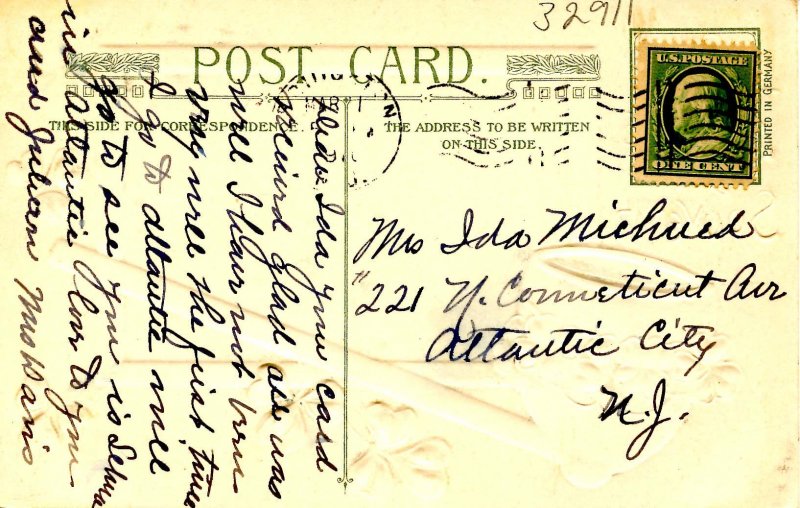 32911
POST CARD.
THIS SIDE FOR CORRESPONDENCE.
THE ADDRESS TO BE WRITTEN
ON THIS SIDE.
U.S. POSTAGE
ONE CENT
PRINTED IN GERMANY
Mrs Ida Michued
221 N. Connecticut Avr
Atlantic City
N.J.
Ida your card
recievrd glad all was
well I have not been
very well the first time
I go to atlantic will
go to see you is Selma
in Atlantic love to you
and Julian Mrs Davis